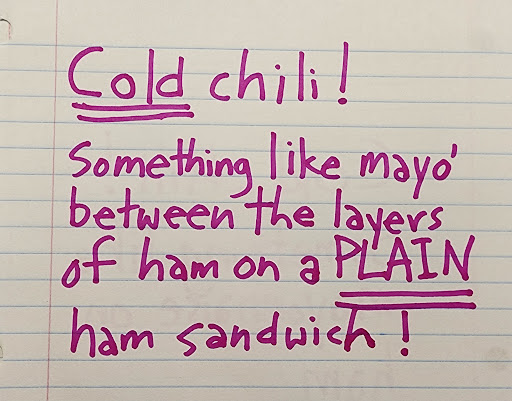 Cold chili!
Something like mayo'
between the layers
of ham on a PLAIN
ham sandwich!